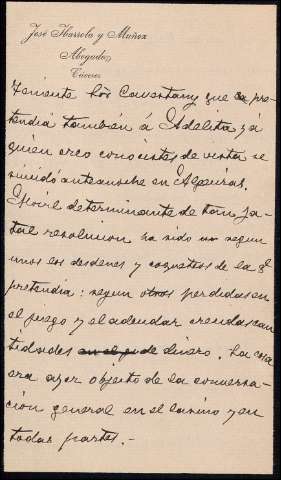 José Ibarrola y Muñoz
Abogado
Cáceres
Teniente que pre-
tendia también á Adelita, y á
quien creo conocistes de vista se
suicidó anteanoche en Algeciras.
Movil determinante de tan fa-
tal resolucion ha sido segun
unos los desdenes y coqueteos de la Sª
pretendia: segun otros perdidas en
el juego y el adeudar crecidas can
tidades en el jue de dinero. La cosa
era ayer objeto de la conversa-
ción general en el casino y en
todas partes.-